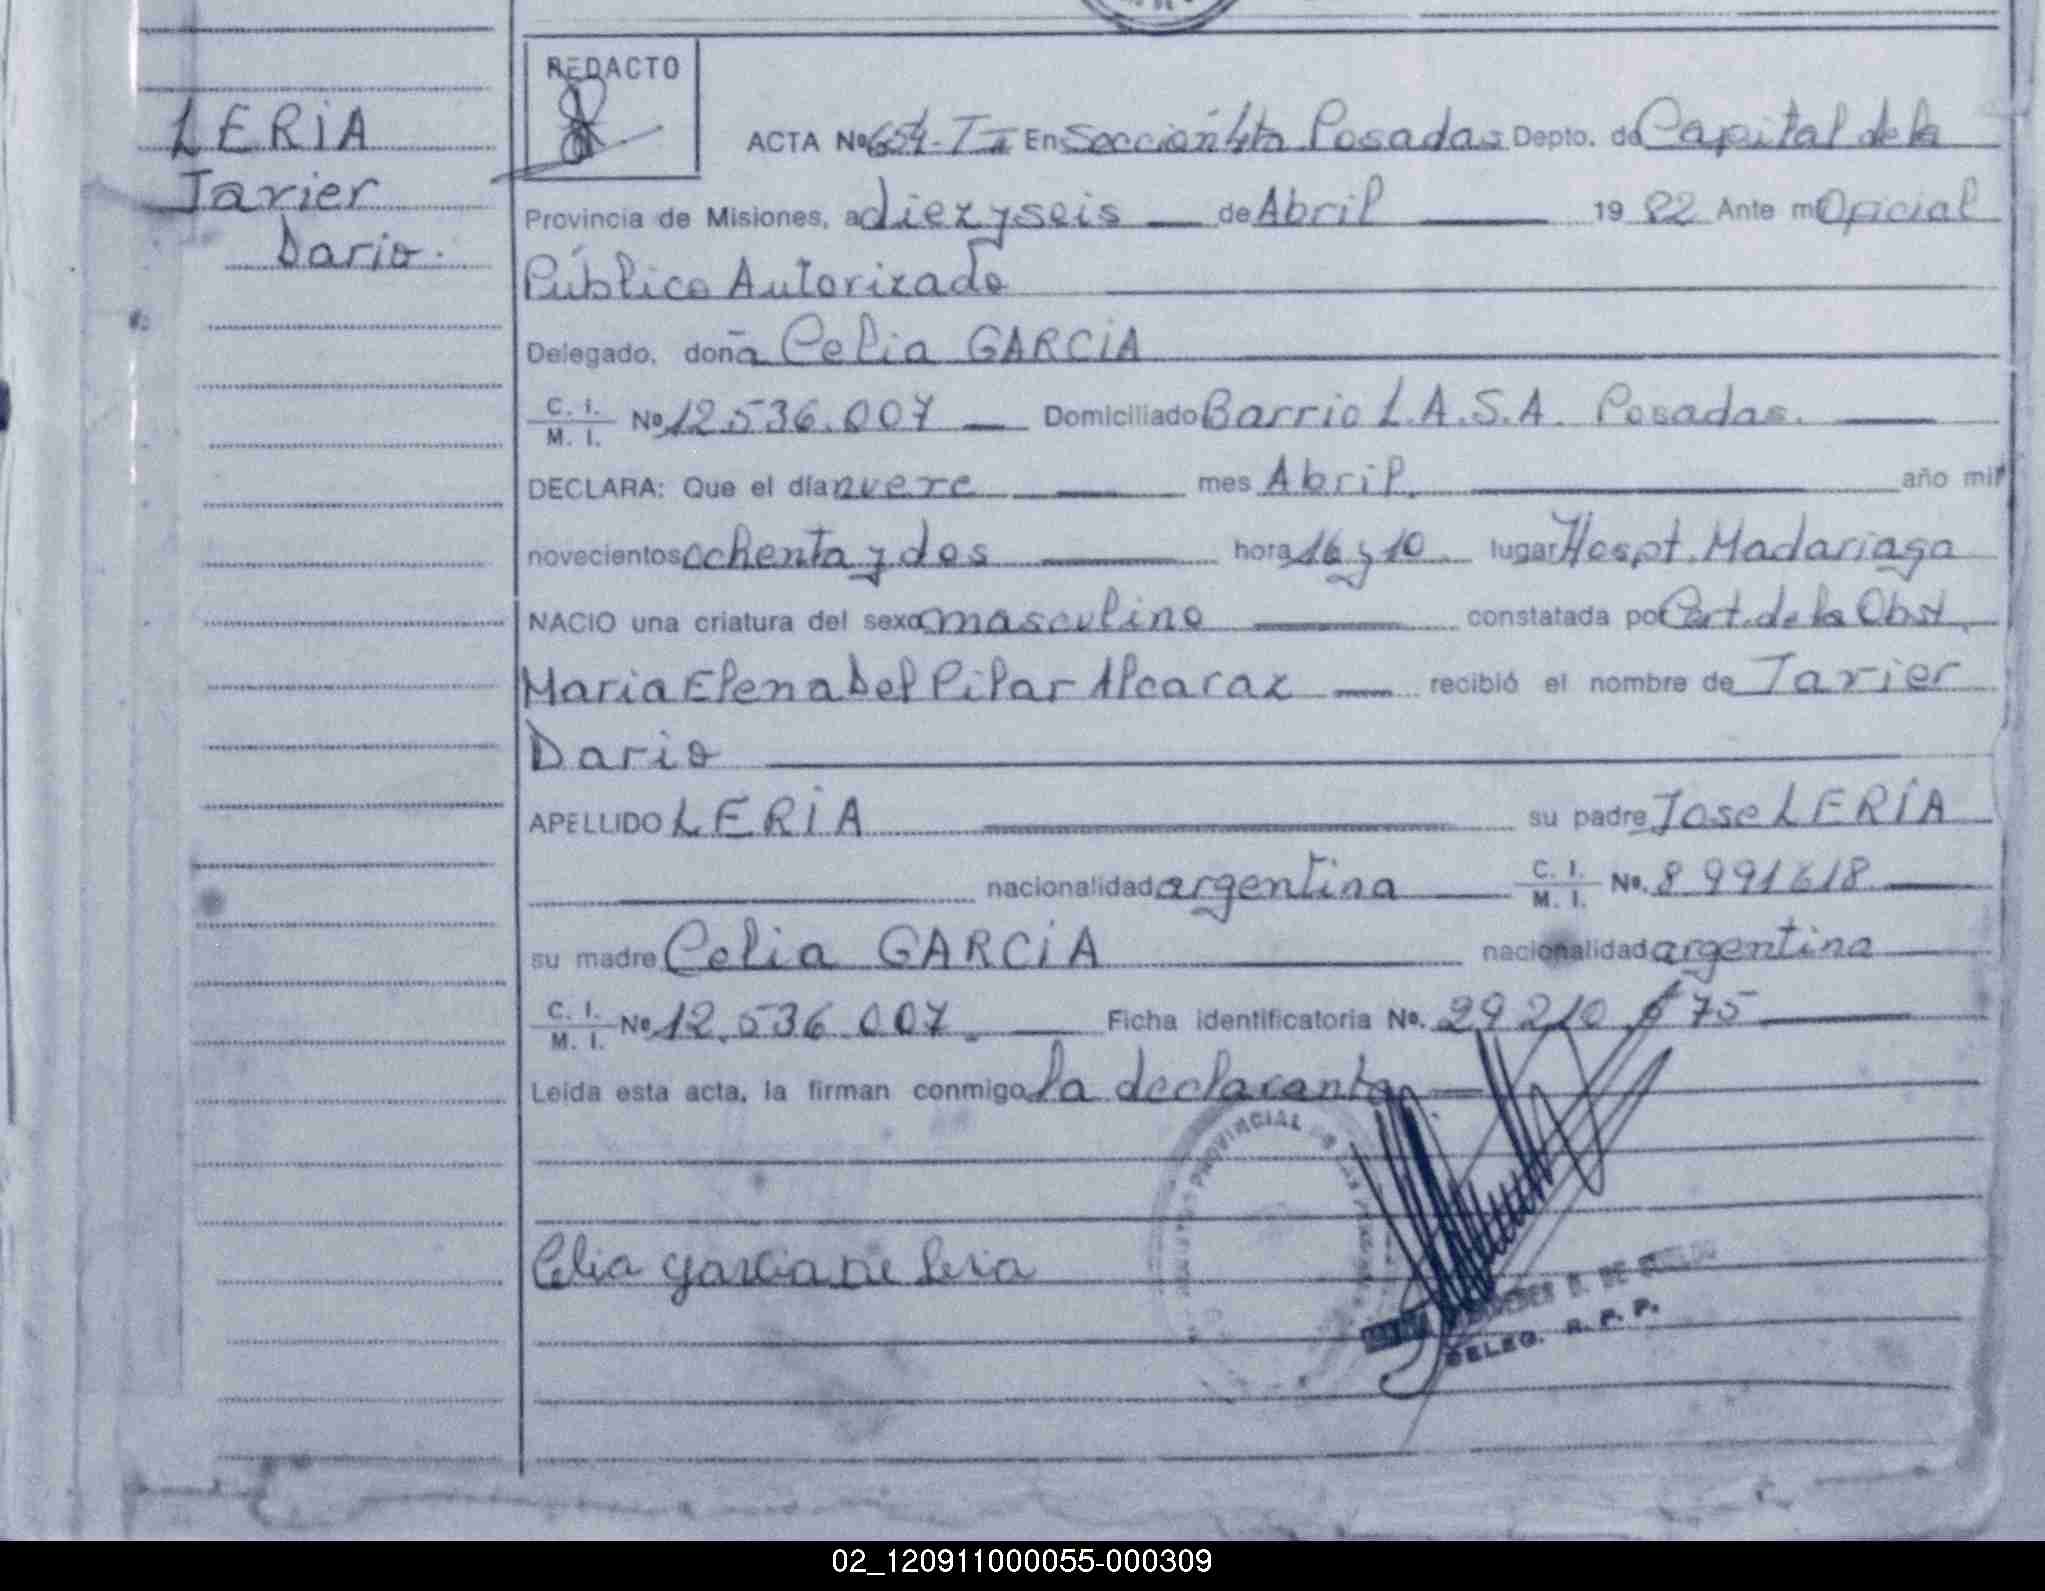 LERIA
Javier
Dario.
REDACTO
ACTA No 604-T II En Sección 4ta Posadas Depto. de Capital de la
Provincia de Misiones, a diez y seis de Abril 1982 Ante mi Oficial
Público Autorizado
Delegado, doña Celia GARCIA
C. I.
M. I. No 12.536.007 Domiciliado Barrio L.A.S.A. Posadas.
DECLARA: Que el día nueve mes Abril. año mil
novecientos ochenta y dos hora 16 y 10 lugar Hospt. Madariaga
NACIO una criatura del sexo masculino constatada por Cert. de la Obst.
Maria Elena Del Pilar Alcaraz recibió el nombre de Javier
Dario
APELLIDO LERIA su padre Jose LERIA
nacionalidad argentina C. I.
M. I. No. 8 991618
su madre Celia GARCIA nacionalidad argentina
C. I.
M. I. No 12.536.007. Ficha identificatoria No. 29 210 675
Leída esta acta, la firman conmigo la declarante
PROVINCIAL DE LAS PERSONAS
Celia Garcia De Leria
DELEG. R. P. P.
02_120911000055-000309